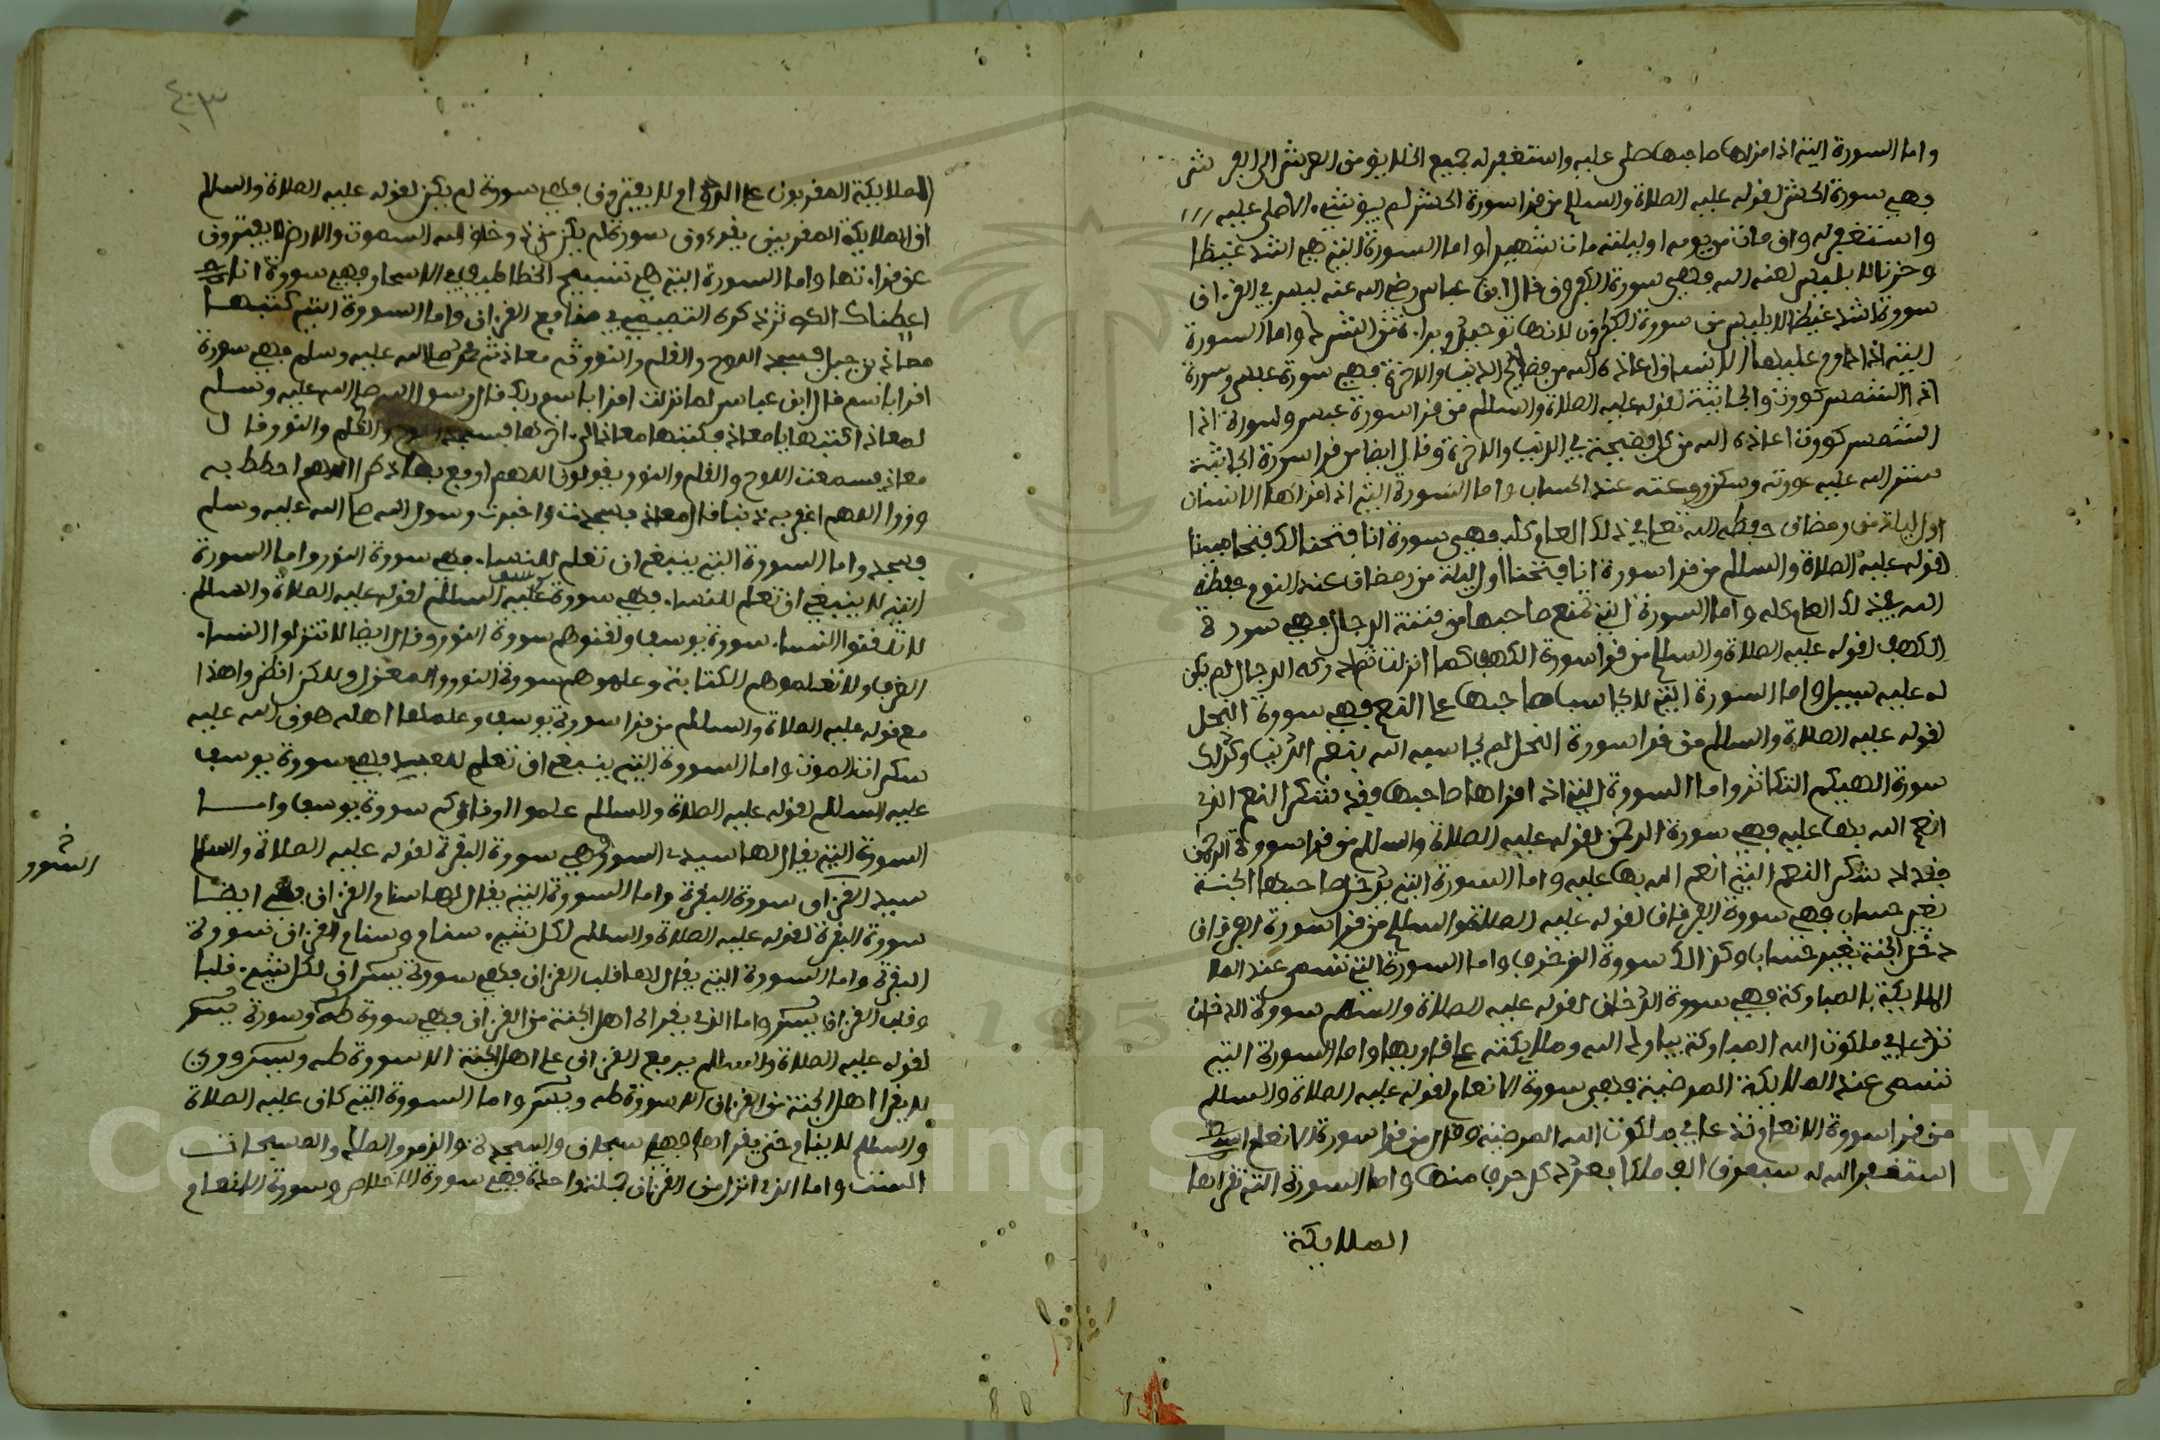 واما السورة التي اذا قراها صاحبها صلى عليه واستغفر له جميع الخلايق من العرش الى الفرش
فهي سورة الحشر لقوله عليه الصلاة والسلم من قرا سورة الحشر لم يبق شيء الا صلى عليه
واستغفر له وان مات من يومه او ليلته مات شهيدا واما السورة التي هي اشد غيظا
وحزنا لابليس لعنه الله فهي سورة الكفرون قال ابن عباس رضي الله عنه ليس في القران
سورة اشد غيظا لابليس من سورة الكفرون لانها توحيد وبراة من الشرك واما السورة
التي اذا داوم عليها الانسان اعاذه الله من فضايح الدنيا والاخرة فهي سورة عبس وسورة
اذا الشمس كورت والجاثية لقوله عليه الصلاة والسلم من قرا سورة عبس وسورة اذا
الشمس كورت اعاذه الله من كل فضيحة في الدنيا والاخرة وقال ايضا من قرا سورة الجاثية
ستر الله عليه عورته وسكن روعته عند الحساب واما السورة التي اذا قراها الانسان
اول ليلة من رمضان حفظه الله تعا في ذلك العام كله فهي سورة انا فتحنا لك فتحا مبينا
لقوله عليه الصلاة والسلم من قرا سورة انا فتحنا اول ليلة من رمضان عند النوم حفظه
الله في ذلك العام كله واما السورة التي تمنع صاحبها من فتنة الدجال فهي سورة
الكهف لقوله عليه الصلاة والسلم من قرا سورة الكهف كما انزلت ثم ادركه الدجال لم يكن
له عليه سبيل واما السورة التي لا يحاسب صاحبها على النعم فهي سورة النحل
لقوله عليه الصلاة والسلم من قرا سورة النحل لم يحاسبه الله بنعم الدنيا وكذلك
سورة الهيكم التكاثر واما السورة التي اذا قراها صاحبها فقد شكر النعم الذي
انعم الله بها عليه فهي سورة الرحمن لقوله عليه الصلاة والسلم من قرا سورة الرحمن
فقد ادا شكر النعم التي انعم الله بها عليه واما السورة التي يدخل صاحبها الجنة
بغير حساب فهي سورة الفرقان لقوله عليه الصلاة والسلم من قرا سورة الفرقان
دخل الجنة بغير حساب وكذلك سورة الزخرف واما السورة التي تسمى عند الملا
الملايكة بالمباركة فهي سورة الدخان لقوله عليه الصلاة والسلم سورة الدخان
تدعا في ملكوت الله المباركة يبارك الله وملايكته على قاريها واما السورة التي
تسمى عند الملايكة المرضية فهي سورة الانعام لقوله عليه الصلاة والسلم
من قرا سورة الانعام تدعا في ملكوت الله المرضية وقال من قرا سورة الانعام
استغفر الله له سبعون الف ملك بعدد كل حرف منها واما السورة التي تقراها
الملايكة
٤٠٣
الملايكة المقربون على الدوام لا يفترون فهي سورة لم يكن لقوله عليه الصلاة والسلم
ان الملايكة المقربين يقرءون سورة لم يكن منذ خلق الله السموت والارض لا يفترون
عن قراءتها واما السورة التي هي تسبيح الخطاطيف في الاسحار فهي سورة انا
اعطيناك الكوثر واما السورة التي كتبها
معاذ بن جبل فسجد اللوح والقلم والنور معاذ ثم محمد صلى الله عليه وسلم فهي سورة
اقرا باسم قال ابن عباس لما نزلت اقرا باسم ربك قال رسول الله صلى الله عليه وسلم
لمعاذ اكتبها يا معاذ فكتبها معاذ فسجد اللوح والقلم والنور قال
معاذ فسمعت اللوح والقلم والنور يقولون اللهم ارفع بها ذكرا اللهم احطط به
وزرا اللهم اغفر به ذنبا قال معاذ فسجدت واخبرت رسول الله صلى الله عليه وسلم
فسجد واما السورة التي ينبغي ان تعلم للنساء فهي سورة النور واما السورة
التي لا ينبغي ان تعلم للنساء فهي سورة يوسف عليه السلام لقوله عليه الصلاة والسلم
لا تلقنوا النساء سورة يوسف ولقنوهم سورة النور وقال ايضا لا تنزلوا النساء
الغرف ولا تعلموهم الكتابة وعلموهم سورة النور والمغزل ولكن انظر هذا
مع قوله عليه الصلاة والسلم من قرا سورة يوسف وعلمها اهله هون الله عليه
سكرات الموت واما السورة التي ينبغي ان تعلم للعبيد فهي سورة يوسف
عليه السلم لقوله عليه الصلاة والسلم علموا ارقاؤكم سورة يوسف واما
السورة التي يقال لها سيدة السور فهي سورة البقرة لقوله عليه الصلاة والسلم
السور
سيد القران سورة البقرة واما السورة التي يقال لها سنام القران فهي ايضا
سورة البقرة لقوله عليه الصلاة والسلم لكل شيء سنام وسنام القران سورة
البقرة واما السورة التي يقال لها قلب القران فهي سورة يس ان لكل شيء قلبا
وقلب القران يس واما الذي يقرا اهل الجنة من القران فهي سورة طه وسورة يس
لقوله عليه الصلاة والسلم يرفع القران على اهل الجنة الا سورة طه ويس وروي
لا يقرا اهل الجنة من القران الا سورة طه ويس واما السورة التي كان عليه الصلاة
والسلم لا ينام حتى يقراها فهي سبحان والسجدة والزمر والملك والمسبحات
الست واما الذي انزل من القران جملة واحدة فهي سورة الاخلاص وسورة الانعام
Copyright King Saud University
1957